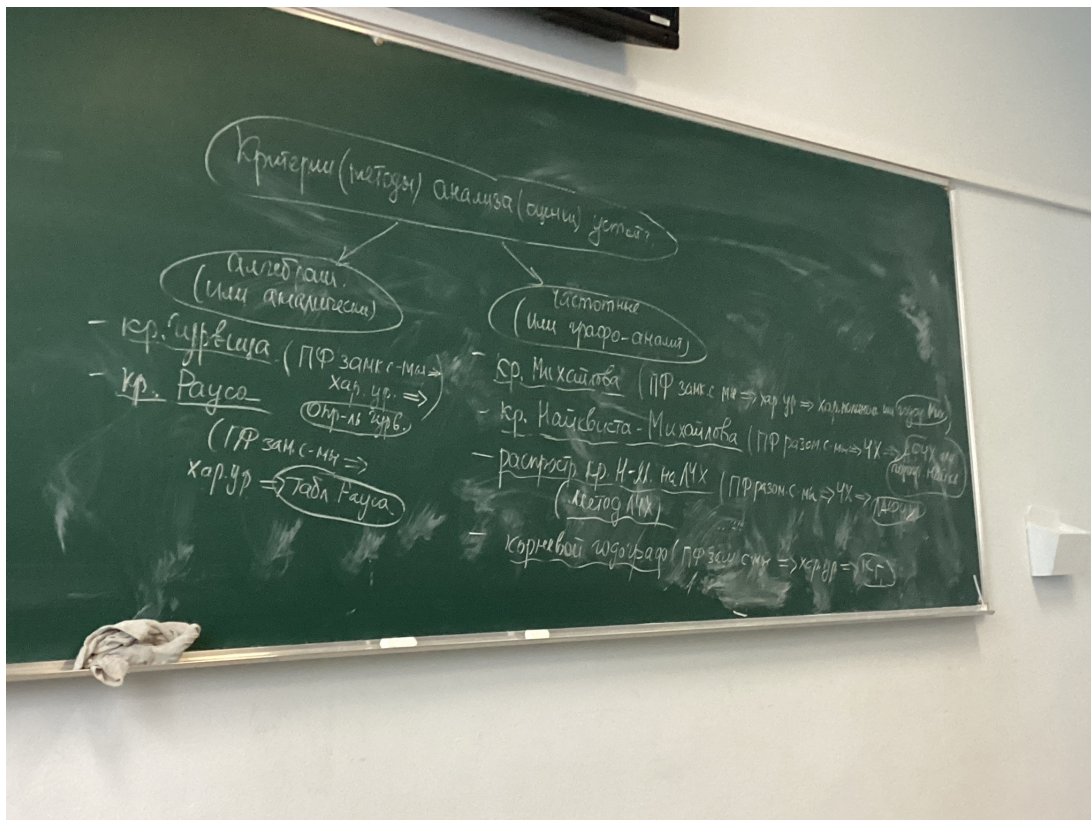 Критерии (методы) анализа (оценки) устой.
Алгебраич.
(или аналитически)
- кр. Гурвица (ПФ замк с-мы =>
хар. ур. =>
Опр-ль Гурв.)
- кр. Рауса
(ПФ зам. с-мы =>
хар. ур => Табл Рауса
Частотные
(или графо-аналит)
- кр. Михайлова (ПФ замк с мы => хар ур =>
- кр. Найквиста-Михайлова (ПФ разом. с-мы => ЧХ =>
- распростр. кр. Н-М. на ЛЧХ (ПФ разом. с мы => ЧХ =>
(метод ЛЧХ)
- корневой годограф (ПФ зам с мы => хар ур => КГ